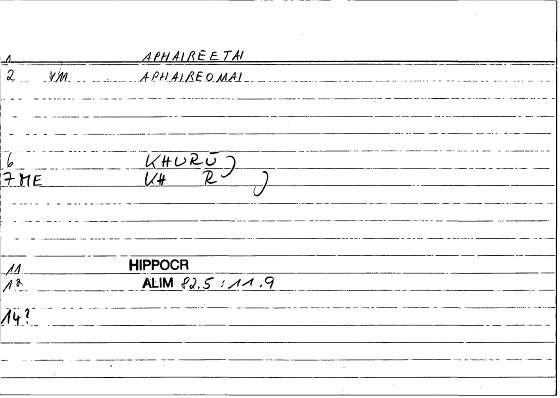 1 APHAIREETAI
2 V/M APHAIREOMAI
6 KHURŪ)
7 ME KH R )
11 HIPPOCR
12 ALIM 82.5 : 11.9
14?